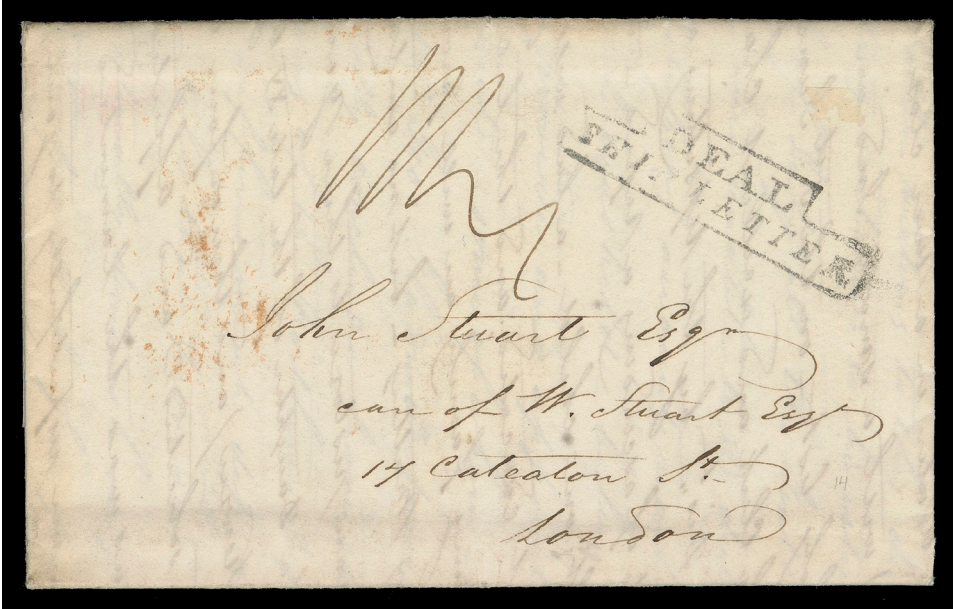 DEAL
SHIP LETTER
John Stuart Esqr
care of W. Stuart Esqr
14 Cateaton St.
London
14